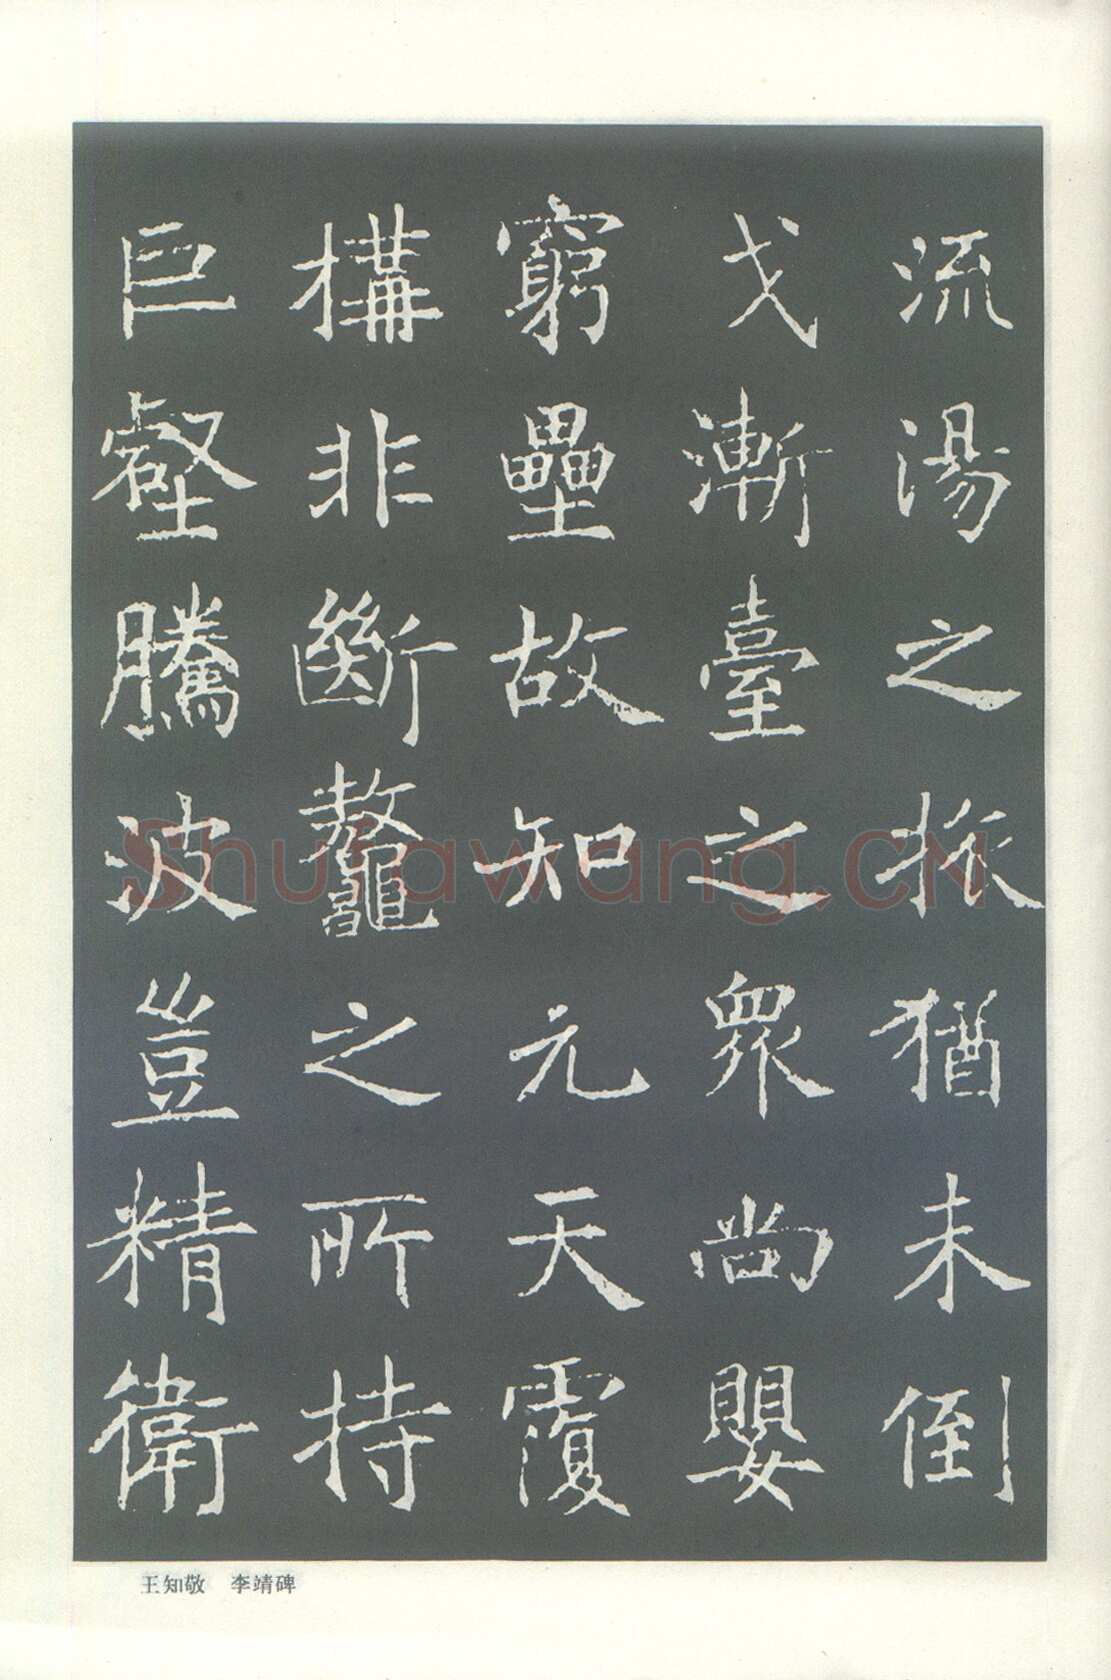 流湯之振猶未倒
戈漸臺之眾尚嬰
窮壘故知元天覆
構非斷鼇之所持
巨壑騰波豈精衛
王知敬 李靖碑
Shufawang.CN